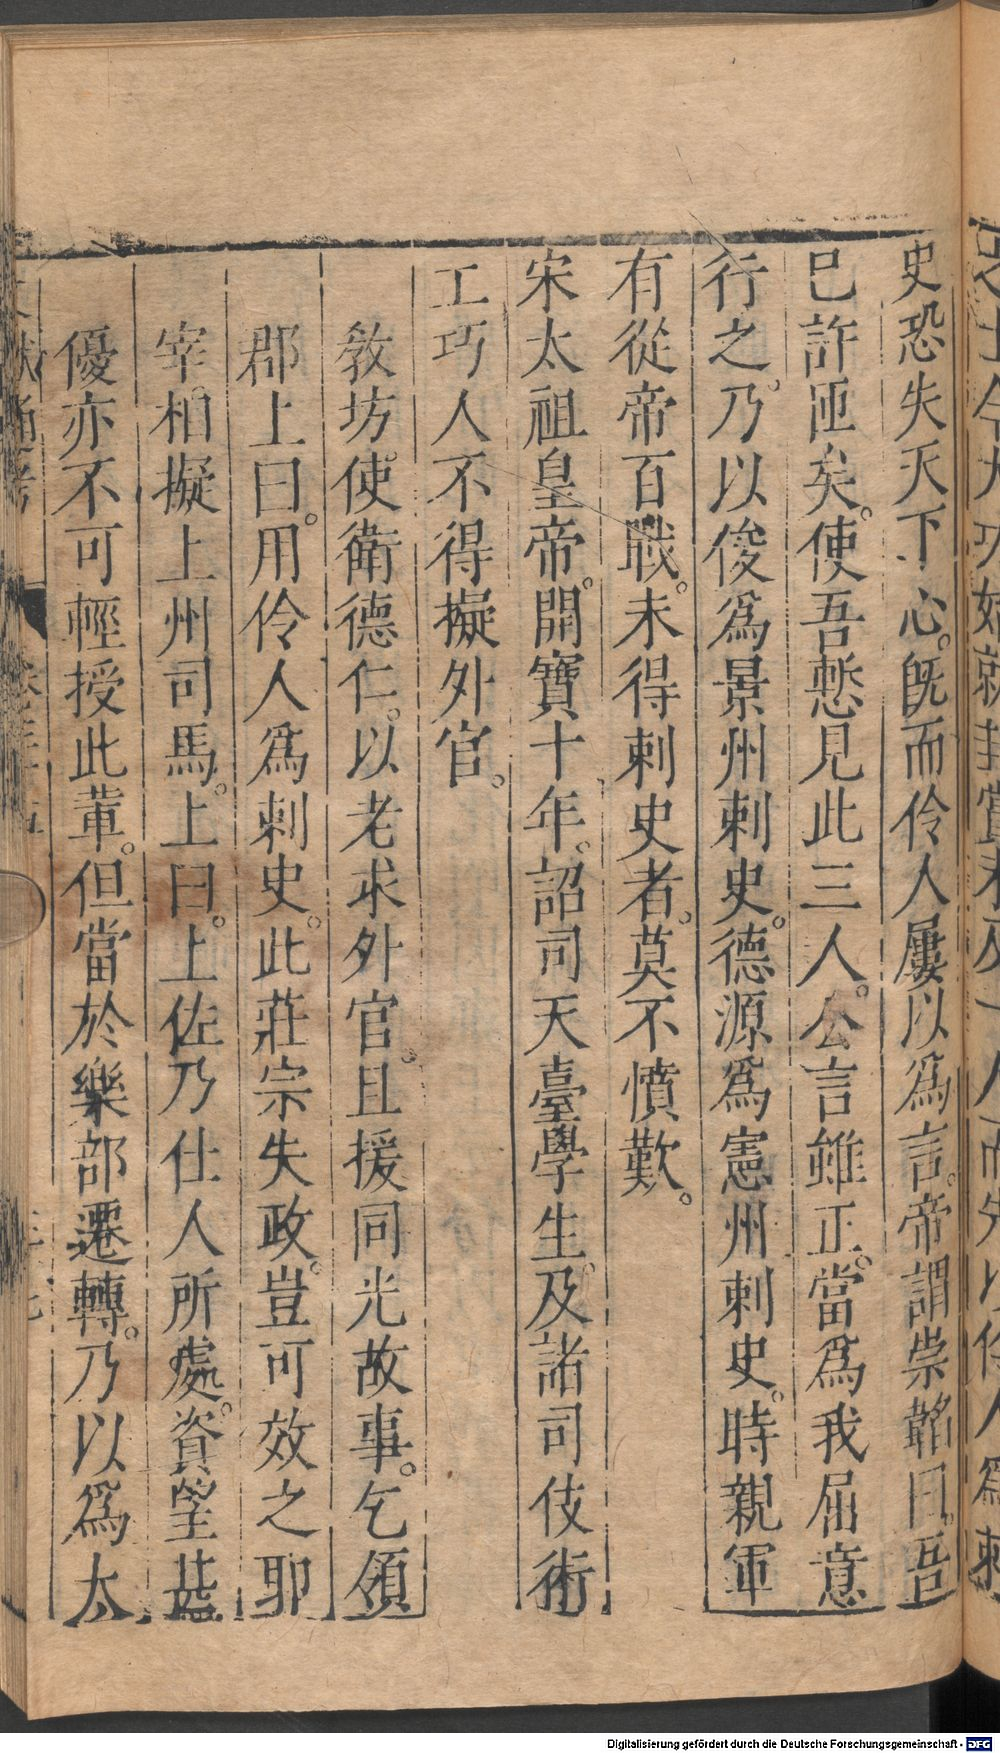 史恐失天下心。旣而伶人屢以爲言。帝謂崇韜曰。吾
巳許匝矣。使吾慙見此三人。公言雖正。當爲我屈意
行之。乃以俊爲景州刺史。德源爲憲州刺史。時親軍
有從帝百戰。未得刺史者。莫不憤歎。
宋太祖皇帝。開寶十年。詔司天臺學生。及諸司伎術
工巧人不得擬外官。
敎坊使衛德仁。以老求外官。且援同光故事。乞領
郡上曰。用伶人爲刺史。此莊宗失政。豈可效之耶
宰。相擬上州司馬。上曰。上佐乃仕人所處。資望甚
優亦不可輕授此輩。但當於樂部遷轉。乃以爲太
Digitalisierung gefördert durch die Deutsche Forschungsgemeinschaft - DFG